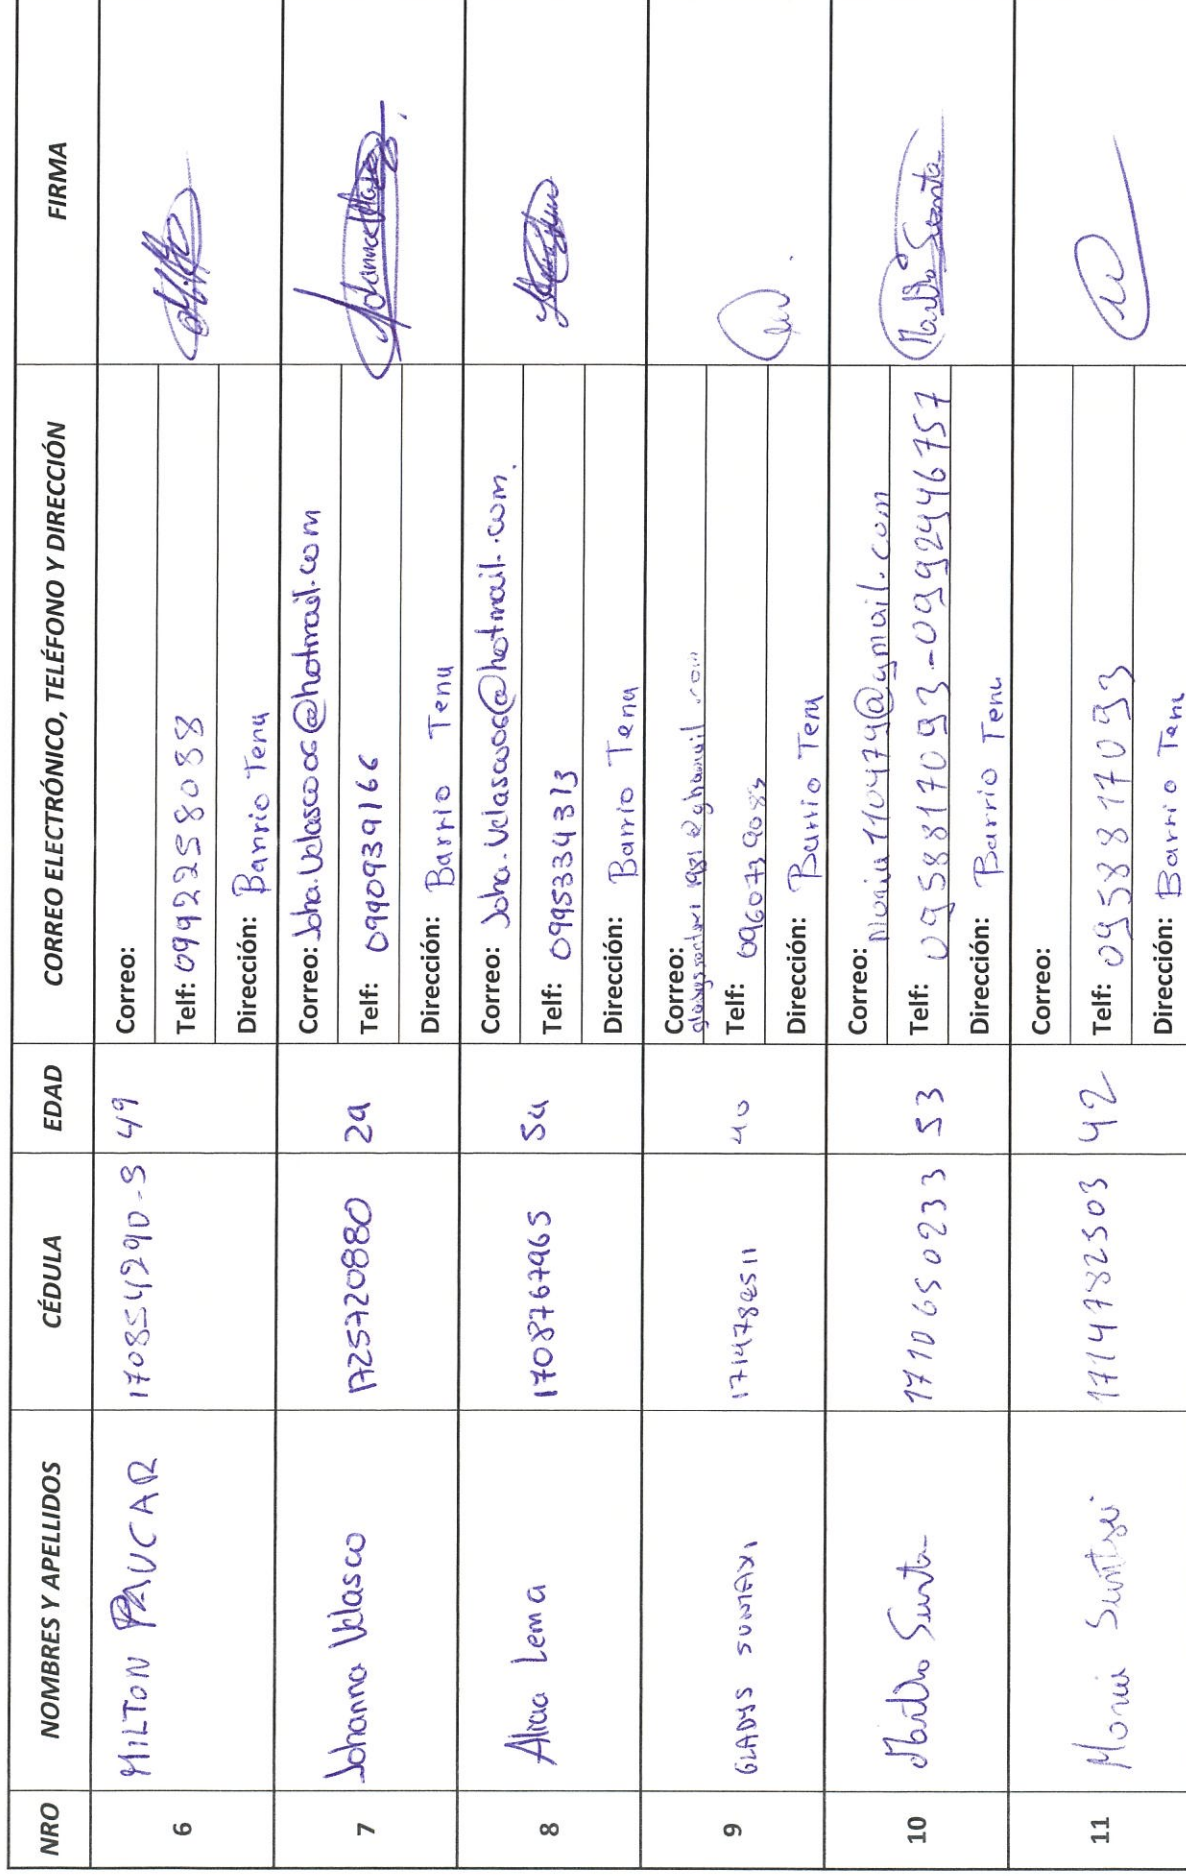 NRO NOMBRES Y APELLIDOS CÉDULA EDAD CORREO ELECTRÓNICO, TELÉFONO Y DIRECCIÓN FIRMA
6 MILTON PAUCAR 170854290-5 49
Correo:
Telf: 0992258088
Dirección: Barrio Tena
7 Johanna Velasco 1725720880 29
Correo: Joha.Velasco06@hotmail.com
Telf: 0990939166
Dirección: Barrio Tena
8 Alicia Lema 1708767965 54
Correo: Joha.Velasco06@hotmail.com.
Telf: 0995334313
Dirección: Barrio Tena
9 GLADYS 1714782511 40
Correo:
Telf: 0960739083
Dirección: Barrio Tena
10 1710650233 53
Correo:
Telf: 0958817093-0992446757
Dirección: Barrio Tena
11 1714782503 42
Correo:
Telf: 0958817093
Dirección: Barrio Tena